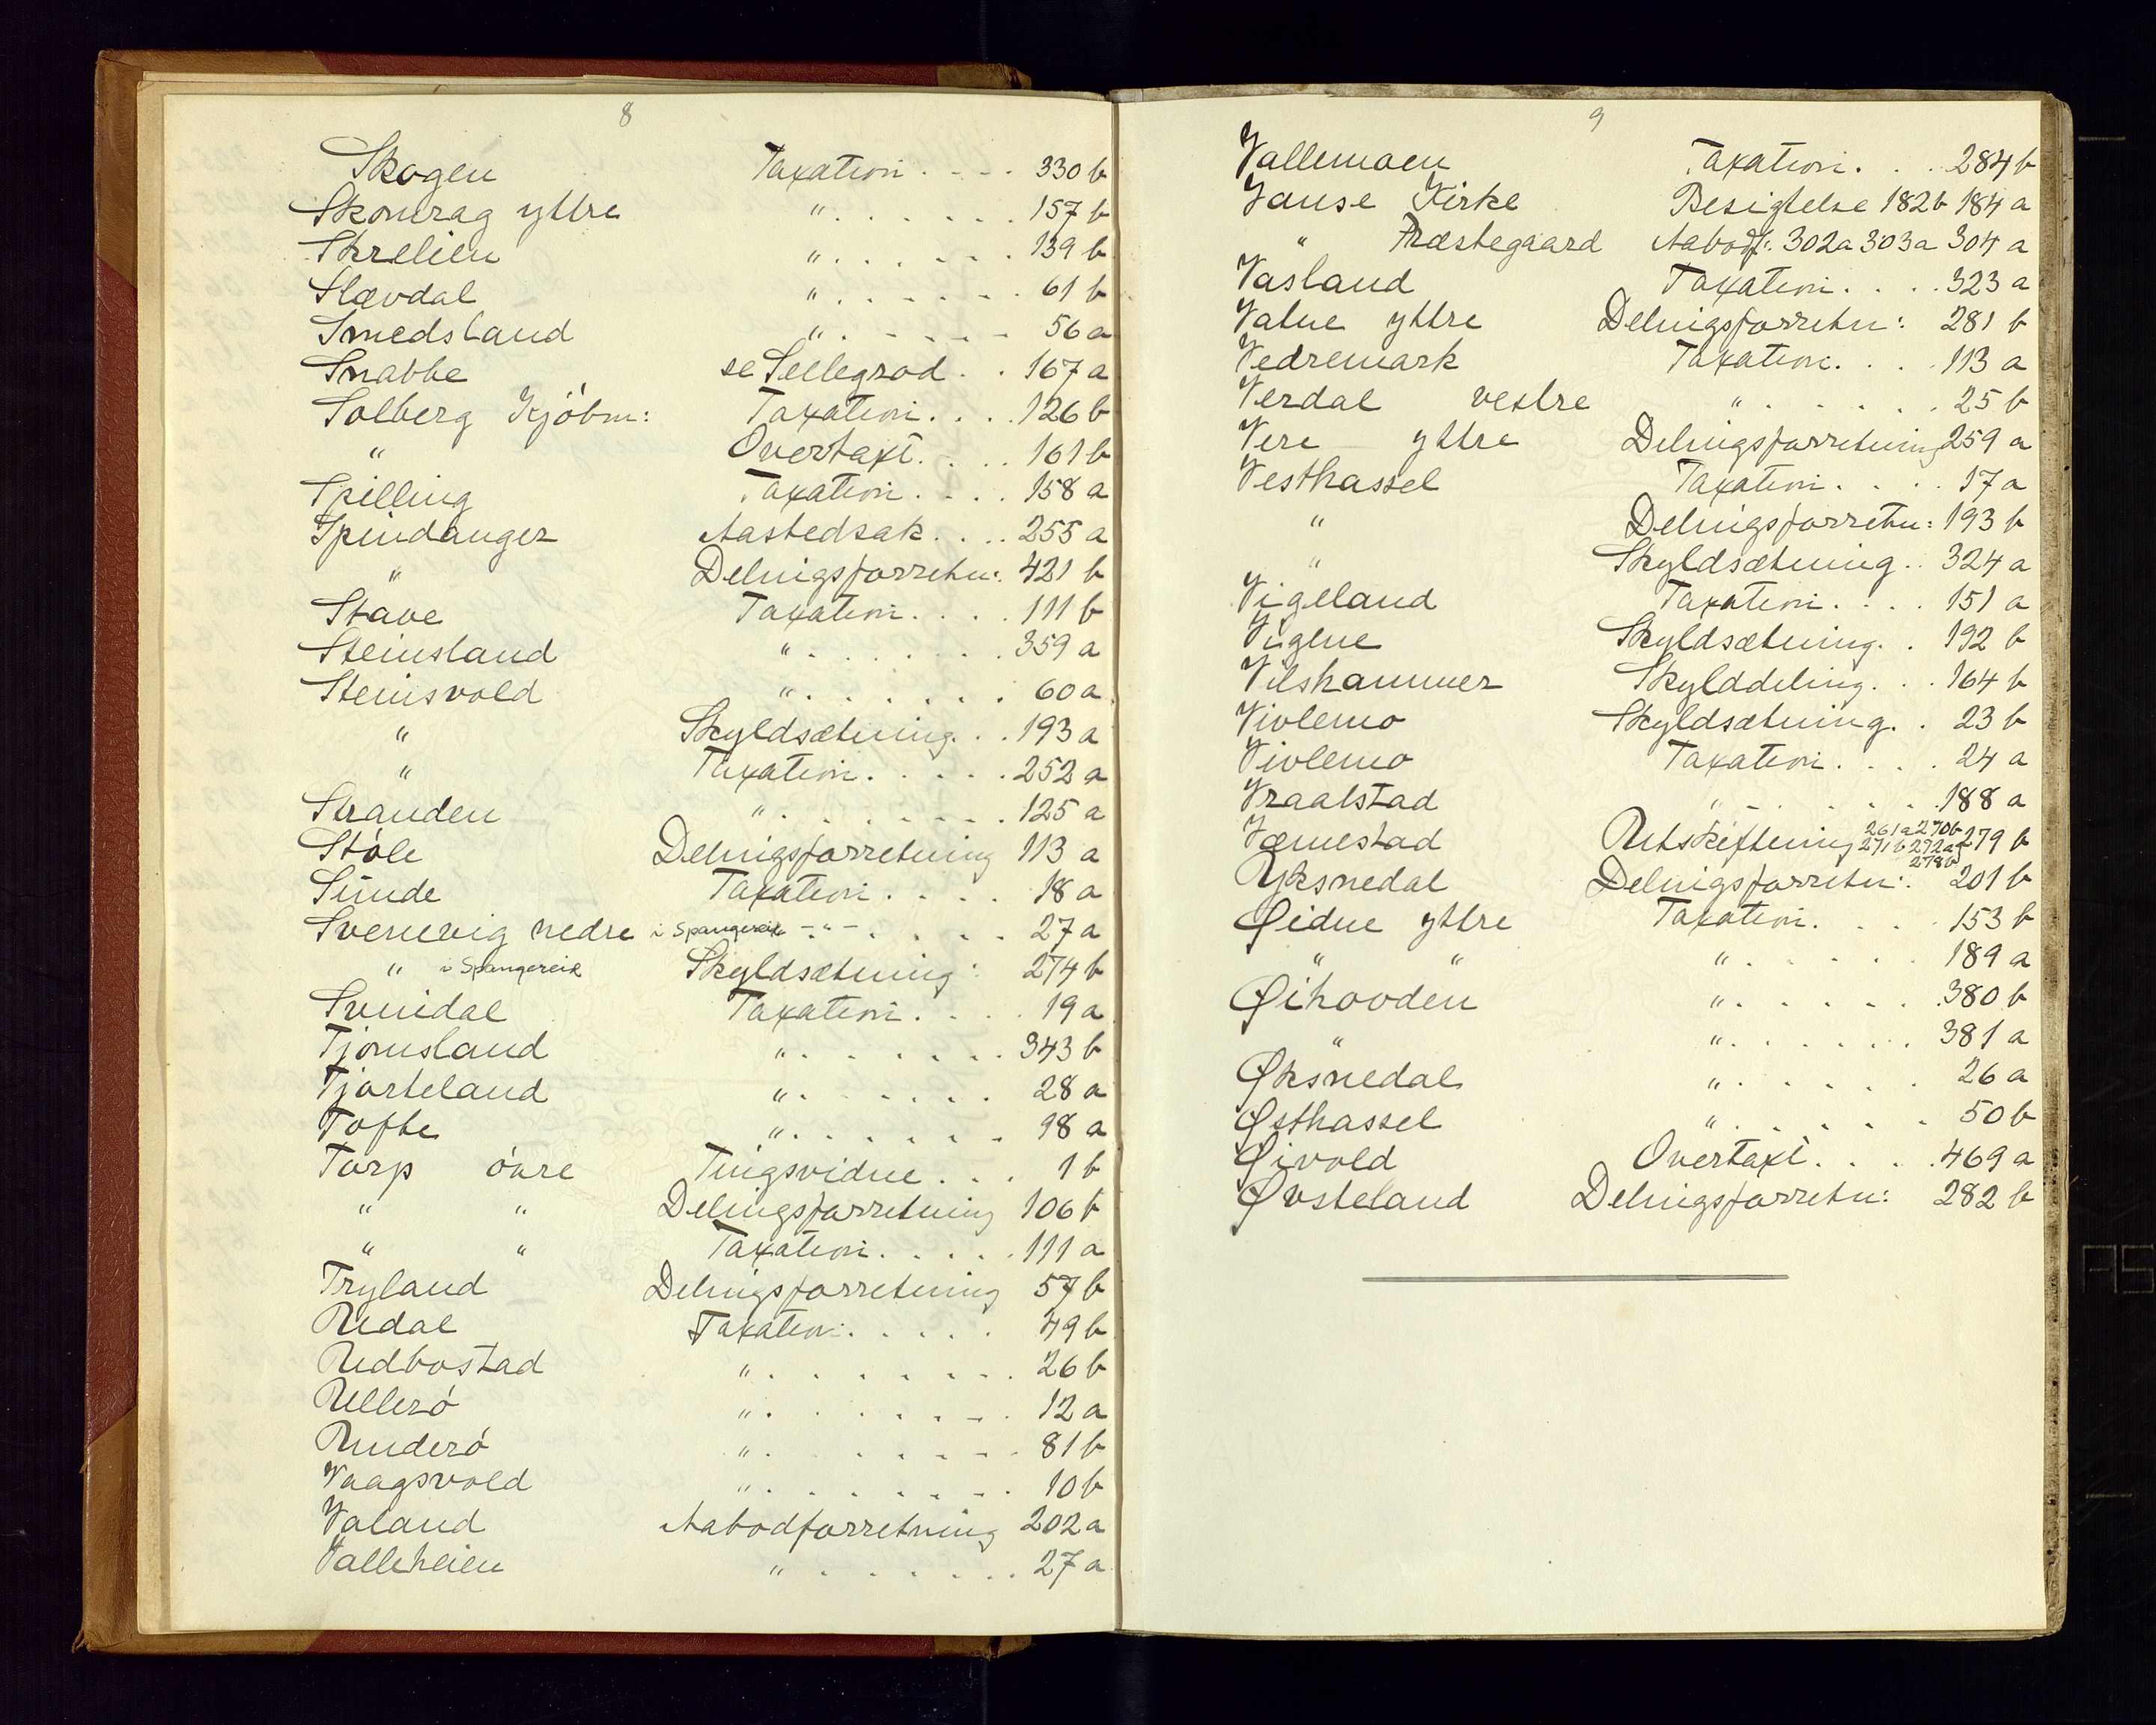 8
Skogen Taxation . . . . 330 b
Skomrag yttre " . . . . . . 157 b
Skrelien " . . . . . . 139 b
Slævdal " . . . . . . 61 b
Smedsland " . . . . . 56 a
Snabbe se Sellegrod . . 167 a
Solberg Kjöbm: Taxation . . . . 126 b
" Overtaxt . . . . 161 b
Spilling Taxation . . . . 158 a
Spindanger Aastedsak . . . . 255 a
" Delnigsforretn: . 421 b
Stave Taxation . . . . 111 b
Steinsland " . . . . . . 359 a
Steinsvold " . . . . . . 60 a
" Skyldsætning . . . 193 a
" Taxation . . . . . 252 a
Stranden " . . . . . . . 125 a
Støle Delnigsforretning 113 a
Sünde Taxation . . . . 18 a
Svenevig nedre i Spangereik - " - . . . . 27 a
" i Spangereik Skyldsætning : 274 b
Svindal Taxation . . . . 19 a
Tjomsland " . . . . . . . 343 b
Tjorteland " . . . . . . 28 a
Tofte " . . . . . . 98 a
Torp övre Tingsvidne . . . 1 b
" " Delingsforretning 106 b
" " Taxation . . . . . 111 a
Tryland Delnigsforretning 57 b
Udal Taxation . . . . . 49 b
Udbostad " . . . . . . . 26 b
Ullerö " . . . . . . 12 a
Underö " . . . . . . 81 b
Vaagsvold " . . . . . . . 10 b
Valand Aabodforretning 202 a
Valleheien " . . . . . . 27 a
9
Vallemoen Taxation . . . 284 b
Vanse Kirke Besigtelse 182 b 184 a
" Præstegaard Aabodf: 302 a 303 a 304 a
Vasland Taxation . . . . 323 a
Vatne yttre Delnigsforretn: 281 b
Vedremark Taxation . . . . 113 a
Verdal vestre " . . . . . . 25 b
Vere yttre Delnigsforretning 259 a
Vesthassel Taxation . . . . 17 a
" Delnigsforretn: 193 b
" Skyldsætning . . 324 a
Vigeland Taxation . . . . 151 a
Vigene Skyldsætning . . 192 b
Vilshammer Skylddeling . . . 164 b
Vivlemo Skyldsætning . . 23 b
Vivlemo Taxation . . . . 24 a
Vraalstad " . . . . . . 188 a
Væmestad Utskiftening 261 a 270 b 271 b 272 a 278 b 279 b
Yksnedal Delnigsforretn: 201 b
Øidne yttre Taxation . . . . 153 b
" " " . . . . . 189 a
Øihovden " . . . . . . 380 b
" " . . . . . . 381 a
Øksnedal " . . . . . . 26 a
Østhassel " . . . . . . 50 b
Øivold Overtaxt . . . . 469 a
Øvsteland Delnigsforretn: 282 b